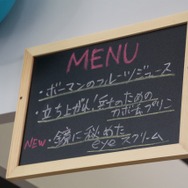 MENU
・ボーマンのフルーツジュース
・立ち上がれ!兵士のための
カボチャプリン
NEW・鏡に秘めた
eyeスクリーム